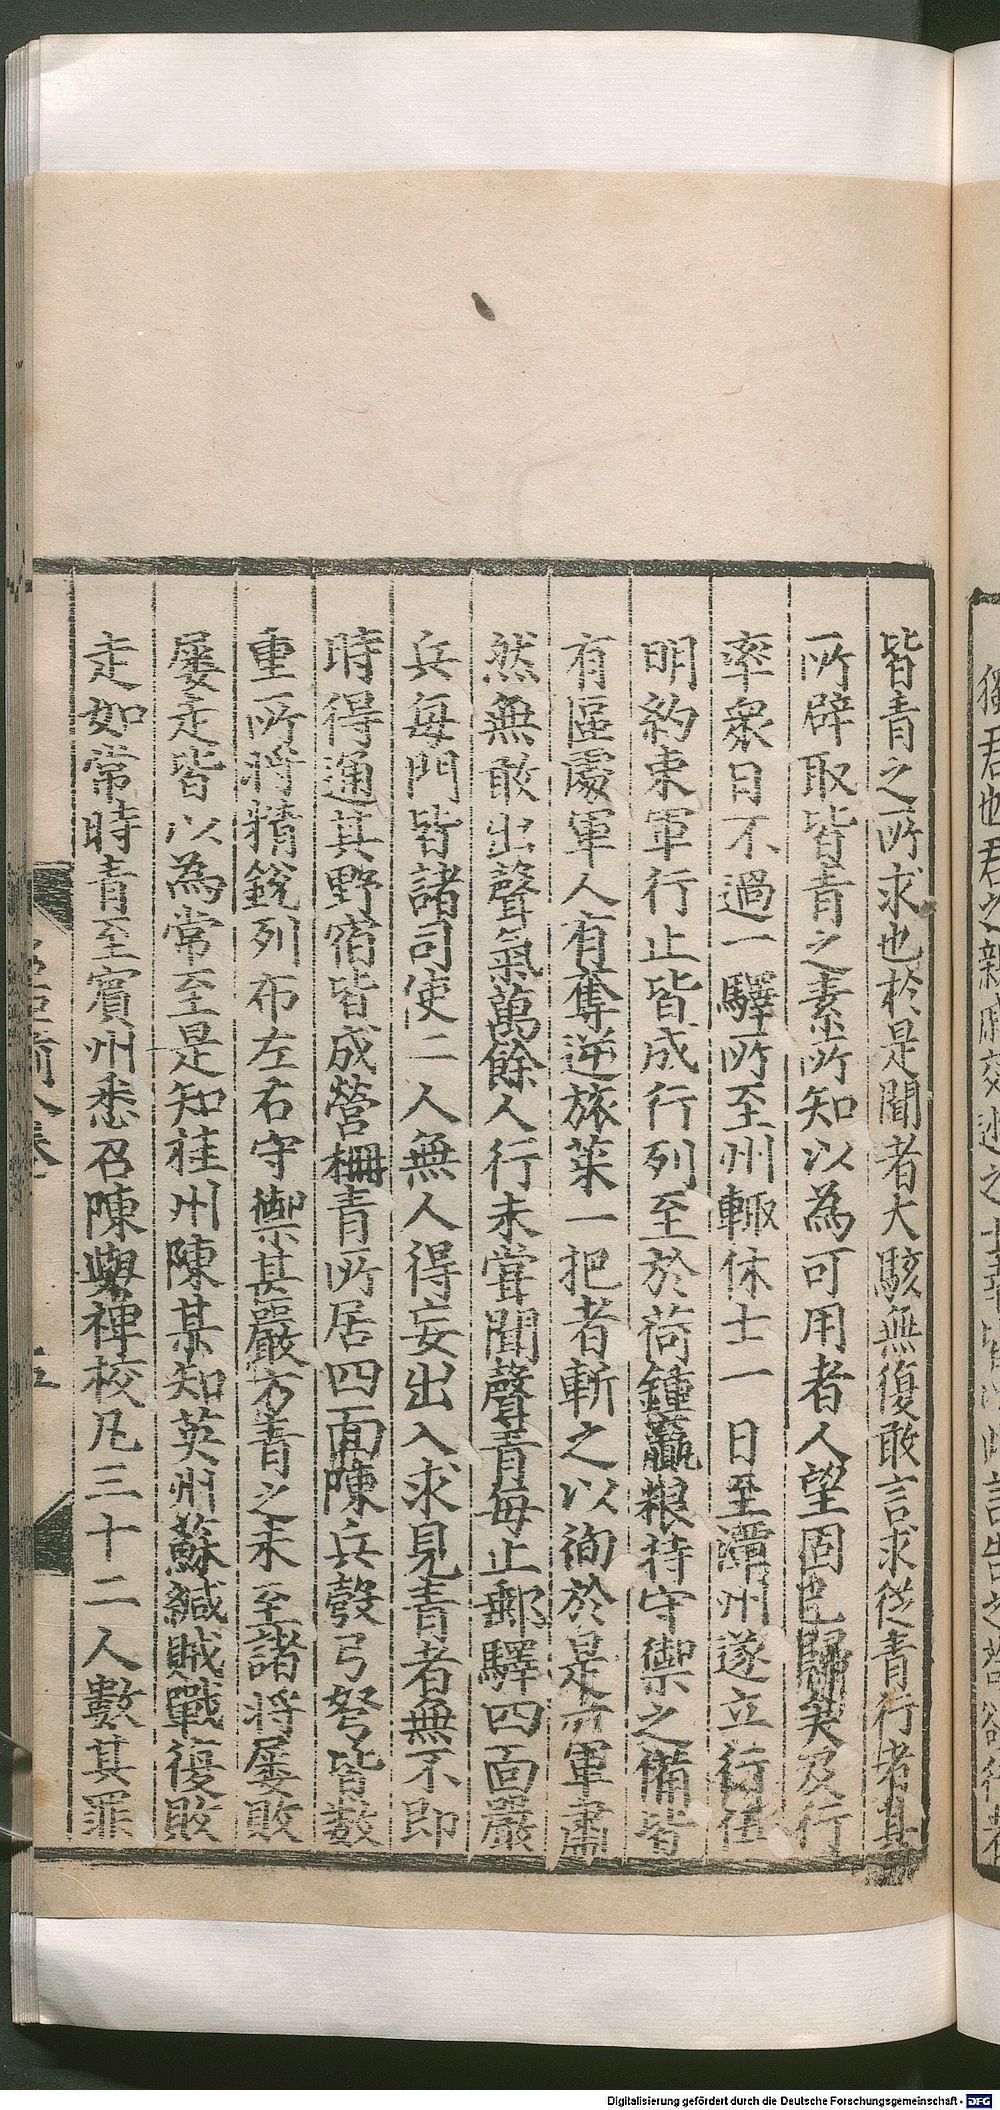 皆青之所求也於是聞者大駭無復敢言求從青行者其
所辟取皆青之素所知以為可用者人望固已歸矣及行
率衆日不過一驛所至州輙休士一日至潭州遂立行伍
明約束軍行止皆成行列至於荷鍤贏粮持守禦之備皆
有區處軍人有奪逆旅菜一把者斬之以徇於是一軍肅
然無敢出聲氣萬餘人行未甞聞聲青每止郵驛四面嚴
兵每門皆諸司使二人無人得妄出入求見青者無不即
時得通其野宿皆成營柵青所居四面陳兵彀弓弩皆數
重所將精銳列布左右守禦甚嚴方青之未至諸將屡敗
屡走皆以為常至是知桂州陳某知英州蘇緘賊戰復敗
走如常時青至賓州悉召陳與裨校凡三十二人數其罪
五
獨君也君之親戚交
Digitalisierung gefördert durch die Deutsche Forschungsgemeinschaft - DFG